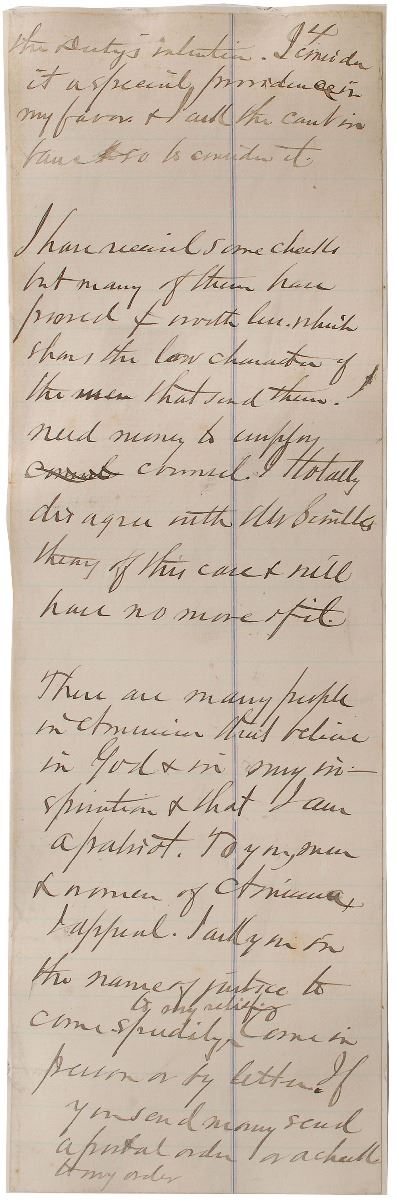 4
the Deity's intention. I consider
it a special providence in
my favor & I ask the court in
banc so to consider it.
I have received some checks
but many of them have
proved worthless. which
shows the low character of
the men that send them. I
need money to employ
counsel. I totally
disagree with Mr Scoville's
theory of this case & will
have no more of it.
There are many people
in America that believe
in God & in my in-
spiration & that I am
a patriot. To you, men
& women of America,
I appeal. I ask you in
the name of justice to
to my relief
come speedily. Come in
person or by letter. If
you send money send
a postal order or a check
to my order